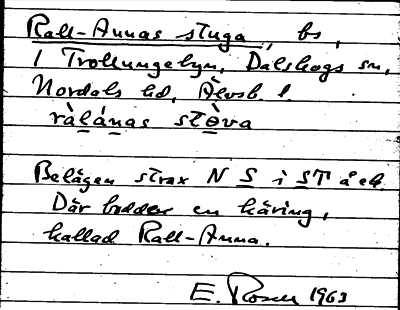 Rall-Annas stuga, bs,
i Trollungebyn, Dalskogs sn,
Nordals hd, Älvsb. l.
ràlánas stòva
Belägen strax N S i ST å ek.
Där bodde en käring,
kallad Rall-Anna.
E. Rosen 1963